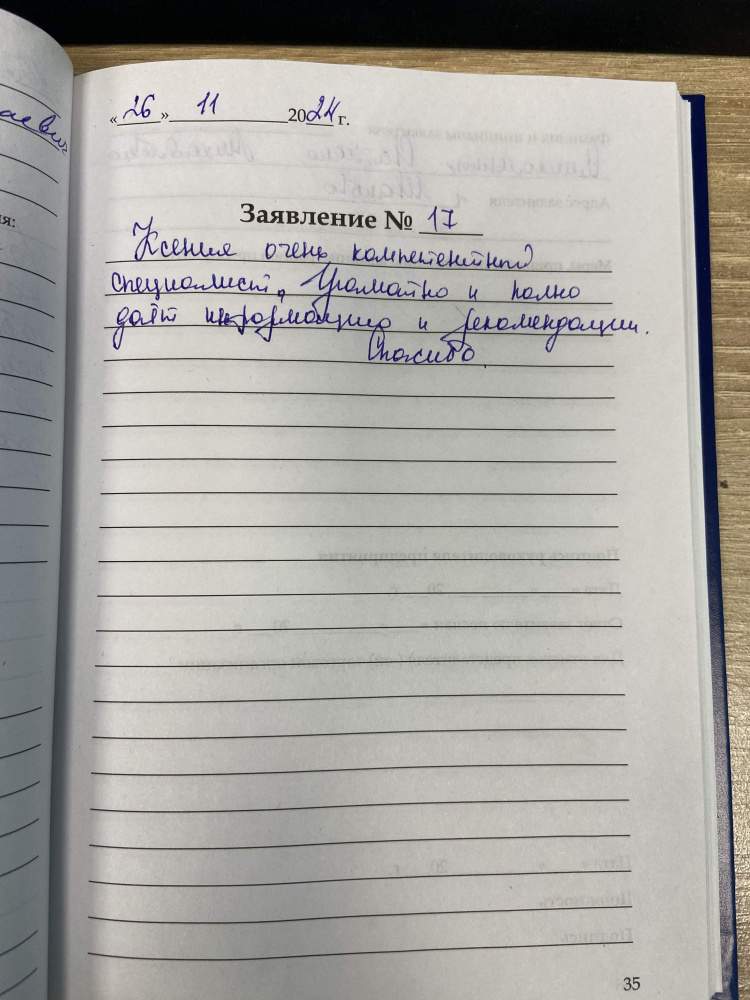 «26» 11 2024 г.
Заявление № 17
Ксения очень компетентный
специалист, Грамотно и полно
даёт информацию и рекомендации.
Спасибо
35